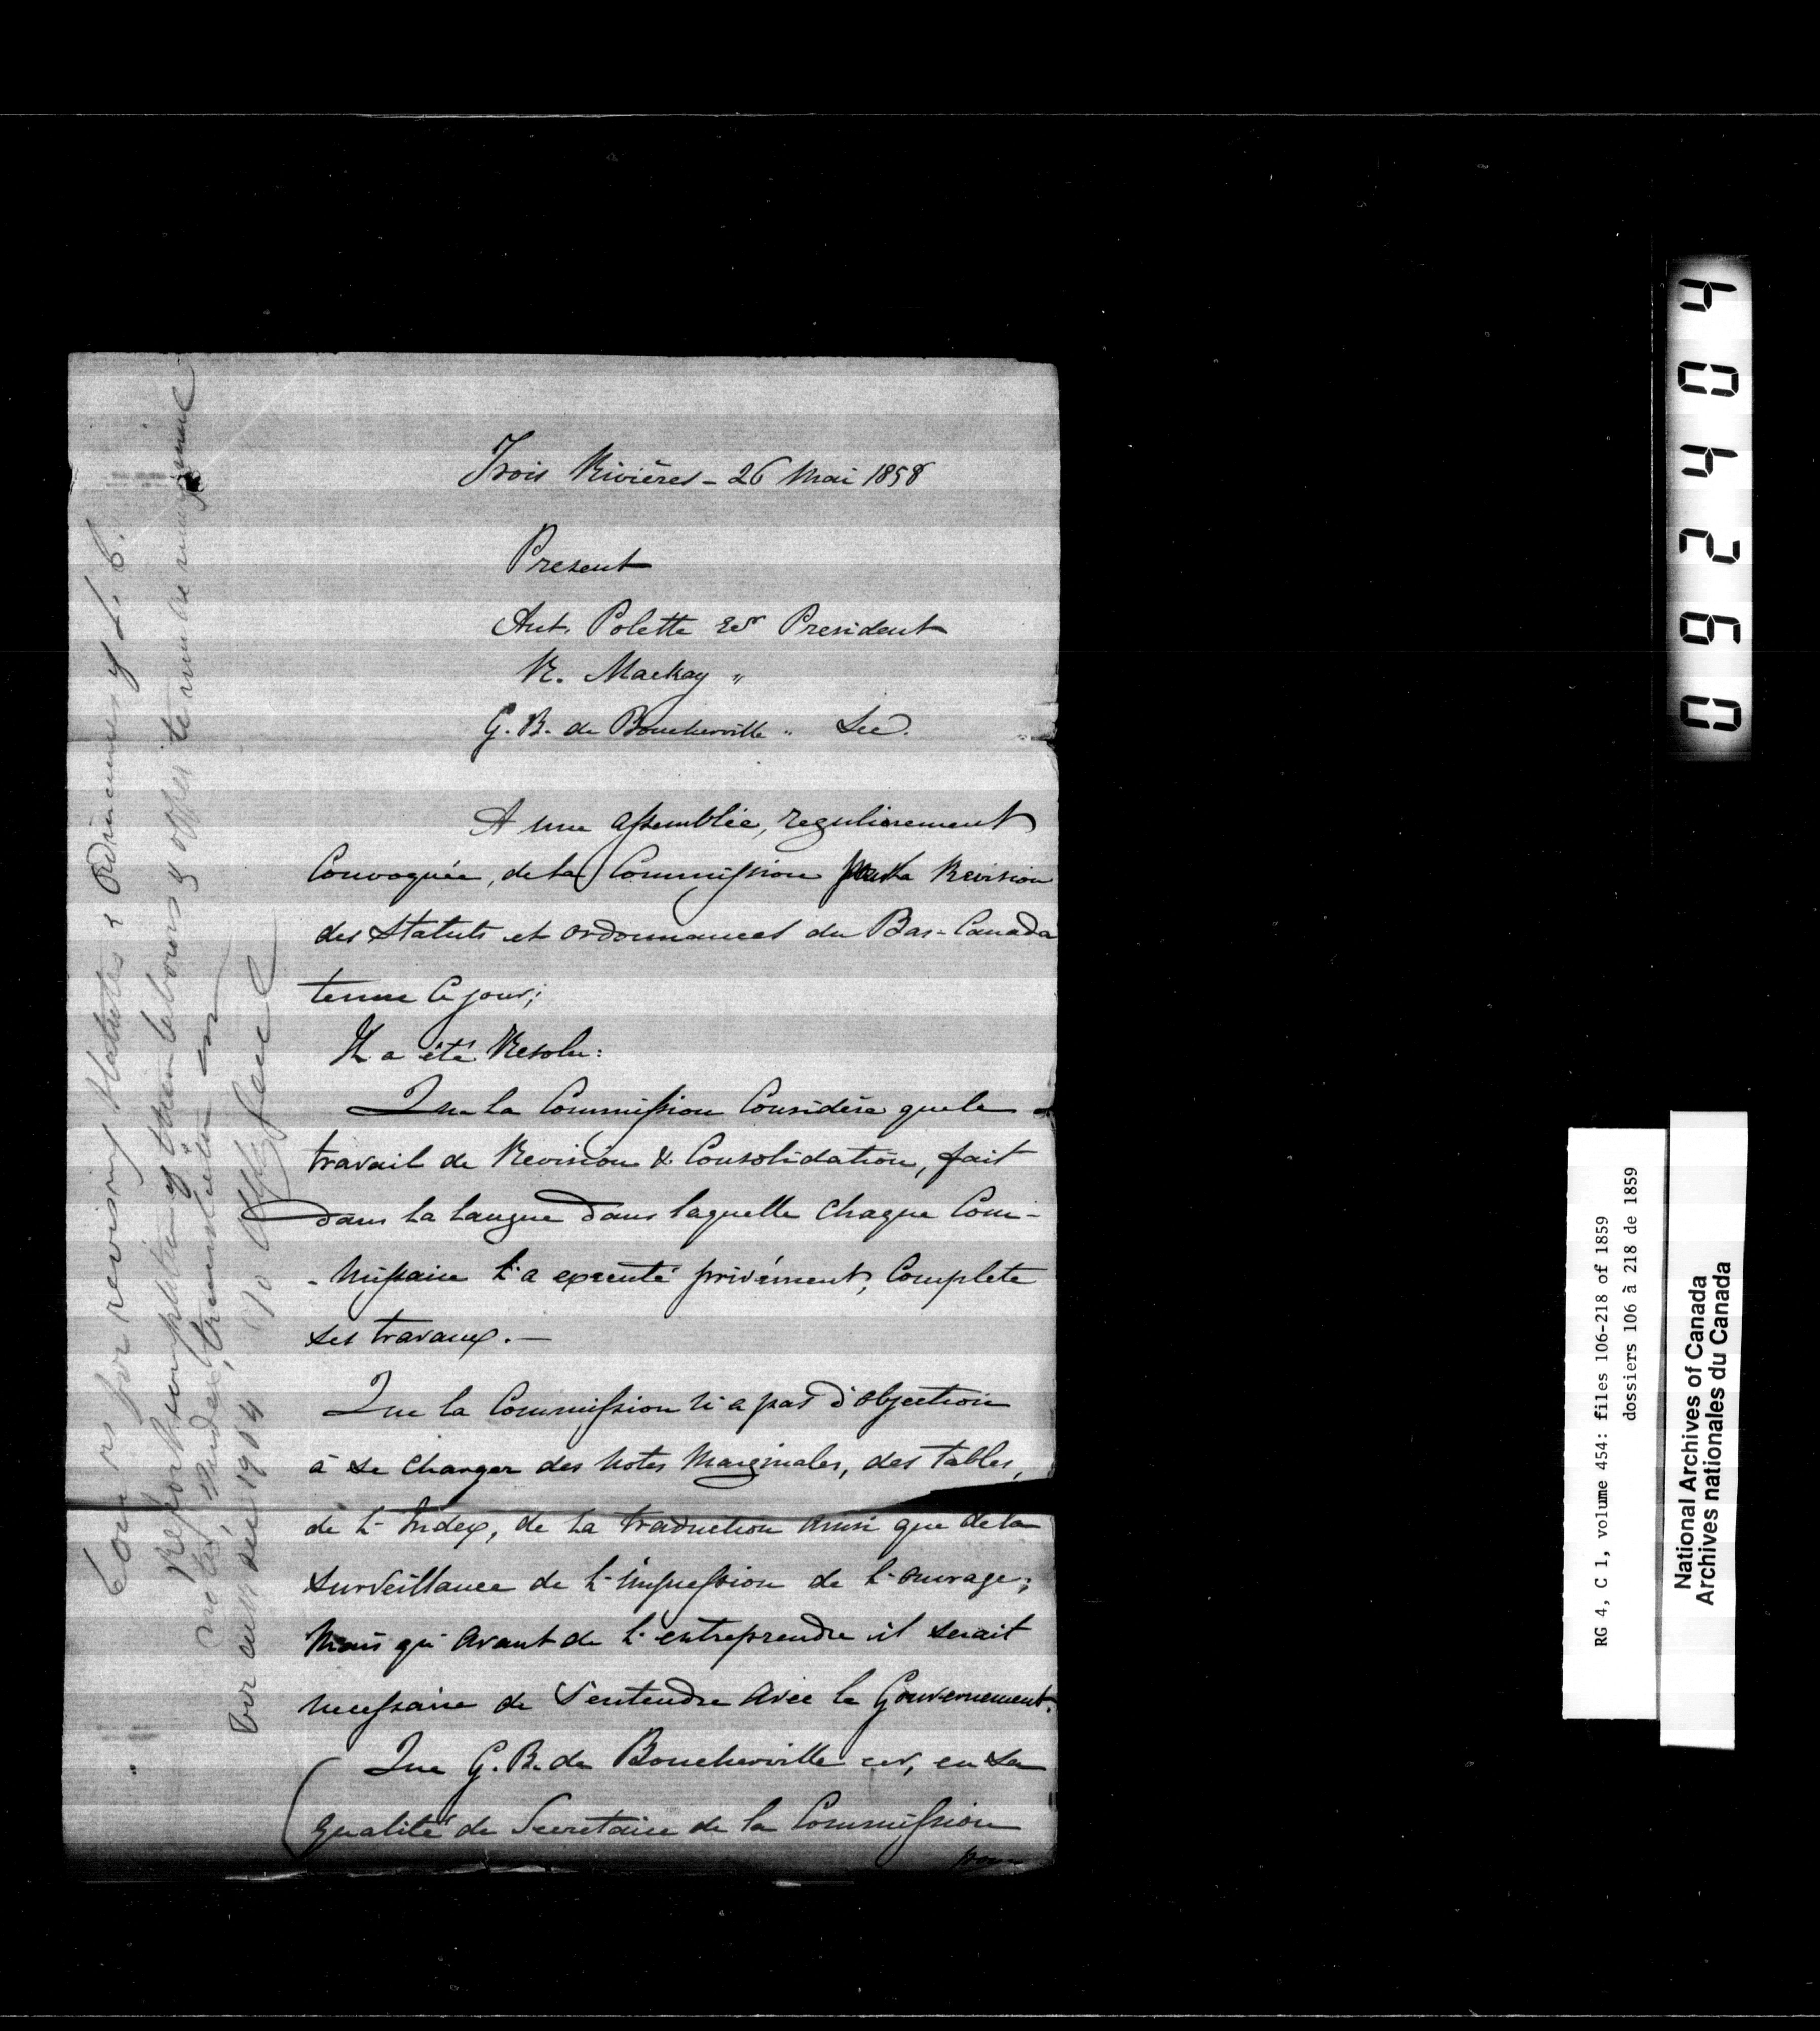 Trois Rivières - 26 Mai 1858
Present
Ant. Polette Esr President
R. Mackay "
G. B. de Boucherville " Sec.
A une assemblée, regulierement
Convoquée, de la Commission pour la Revision
des Statuts et ordonnances du Bas-Canada
tenue ce jour;
Il a été Resolu:
Que la Commission Considère que le
travail de Revision & Consolidation, fait
dans la langue dans laquelle chaque Com-
-missaire l'a executé privément, complete
ses travaux. —
Que la Commission n'a pas d'objection
à se charger des notes Marginales, des tables,
de l'Index, de la traduction ainsi que de la
surveillance de l'impression de l'ouvrage;
Mais qu'avant de l'entreprendre il serait
necessaire de s'entendre avec le Gouvernement.
Que G. B. de Boucherville esr, en sa
qualité de Secretaire de la Commission
pour
Comrs for revising Statutes & Ordinances of L. C.
Report completion of their labours & offer to
notes, Index, translation
1904
4 0 4 2 6 0
RG 4, C 1, volume 454: files 106-218 of 1859
dossiers 106 à 218 de 1859
National Archives of Canada
Archives nationales du Canada